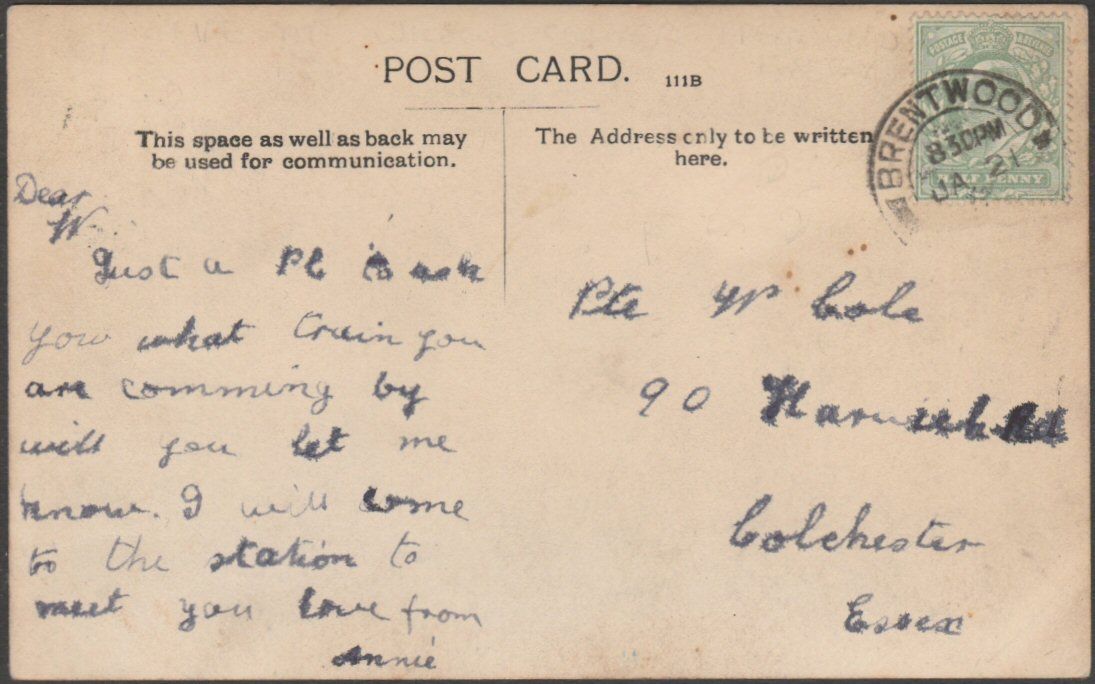 POST CARD. 111B
This space as well as back may
be used for communication.
The Address only to be written
here.
POSTAGE & REVENUE
HALF PENNY
BRENTWOOD
8 30PM
JA 21
Dear
W.
Just a PC to ask
you what train you
are comming by
will you let me
know. I will come
to the station to
meet you love from
Annie
Pte W Cole
90 Harwich Rd
Colchester
Essex